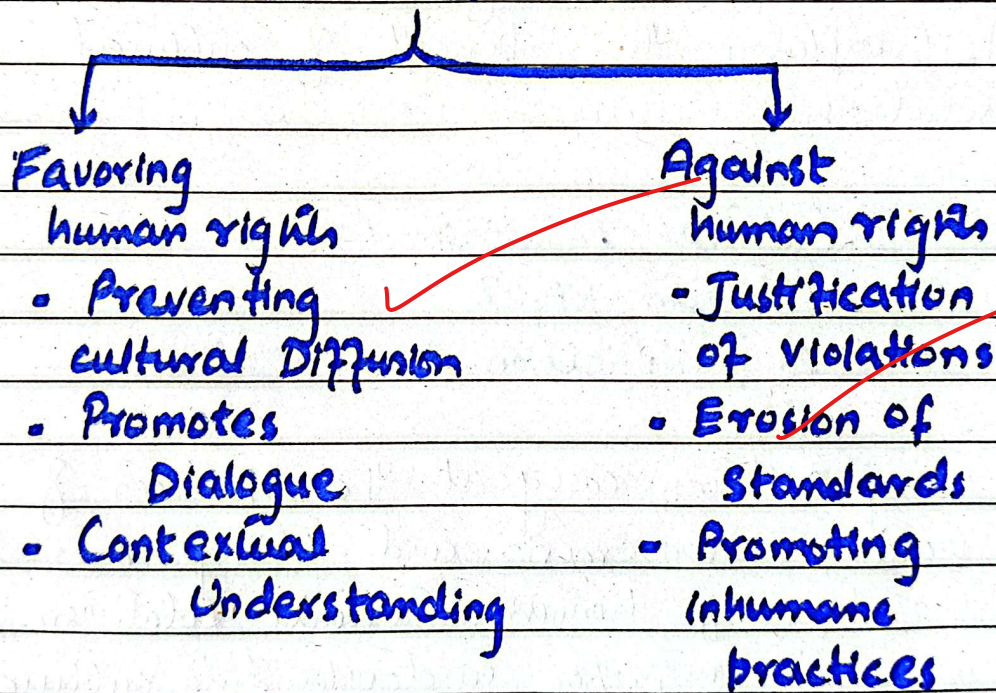 Favoring
human rights
• Preventing
cultural Diffusion
• Promotes
Dialogue
• Contextual
Understanding
Against
human rights
• Justification
of violations
• Erosion of
Standards
• Promoting
inhumane
practices